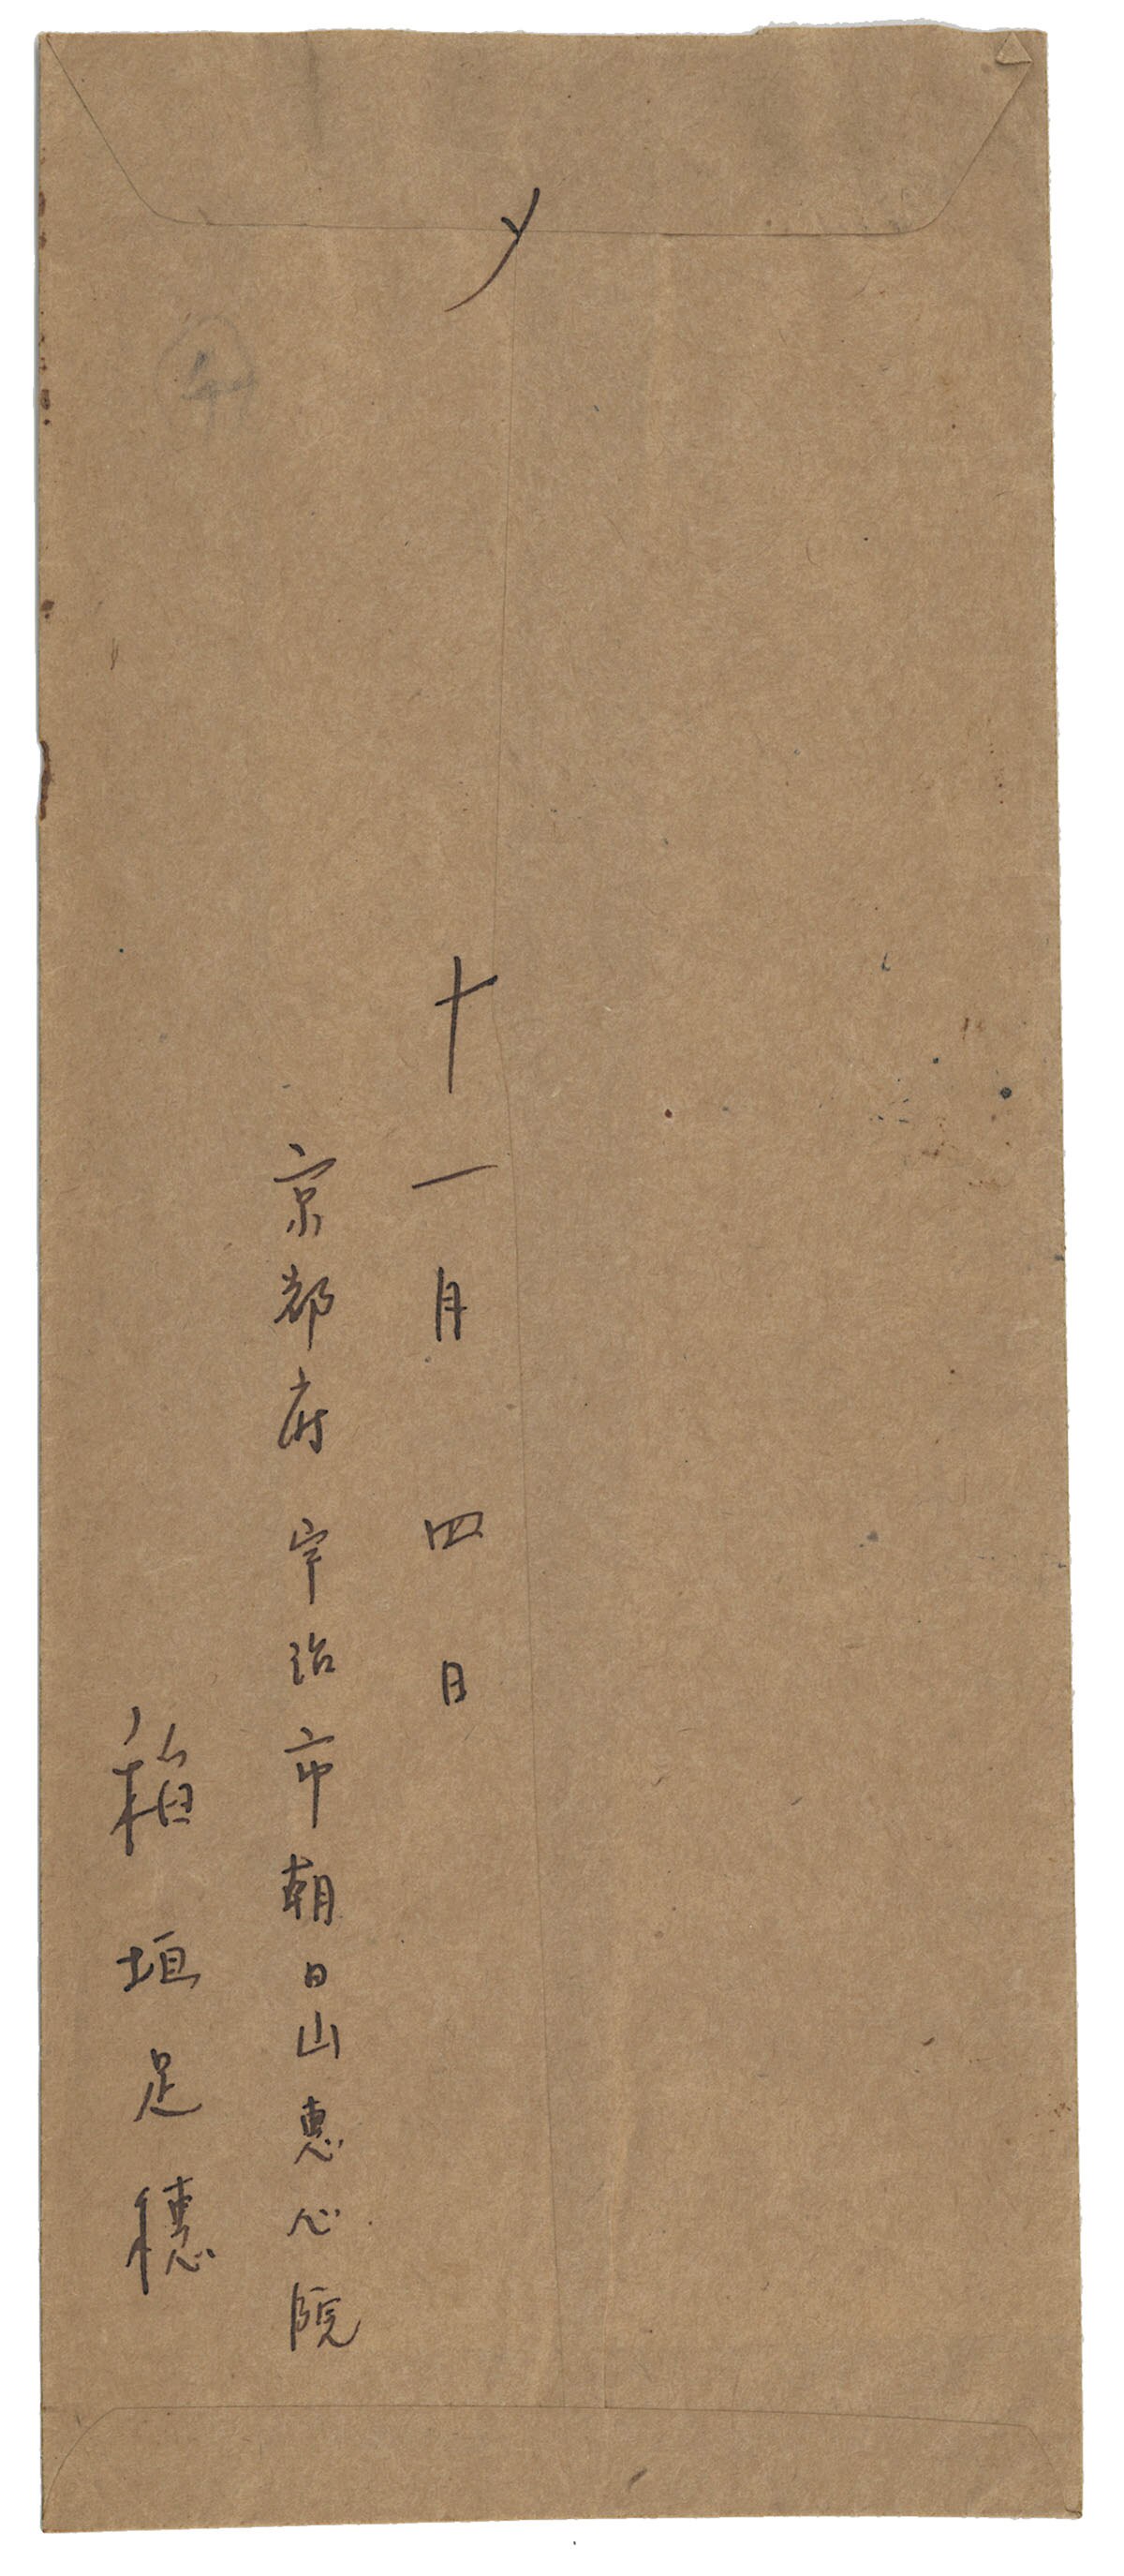 〆
十一月四日
京都府 宇治市朝日山恵心院
稲垣足穂